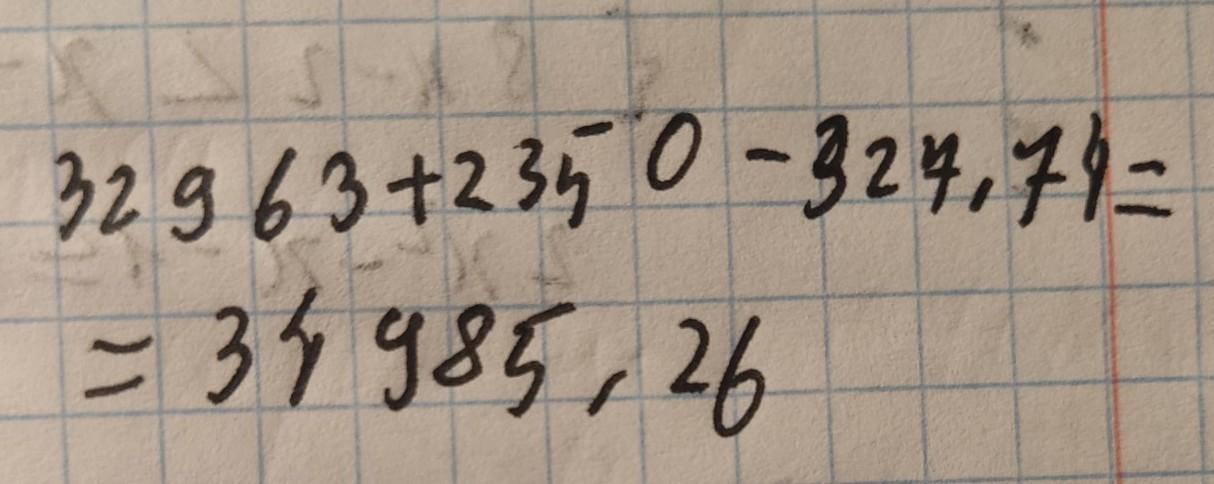 32963+2350-327,74=
=34985,26